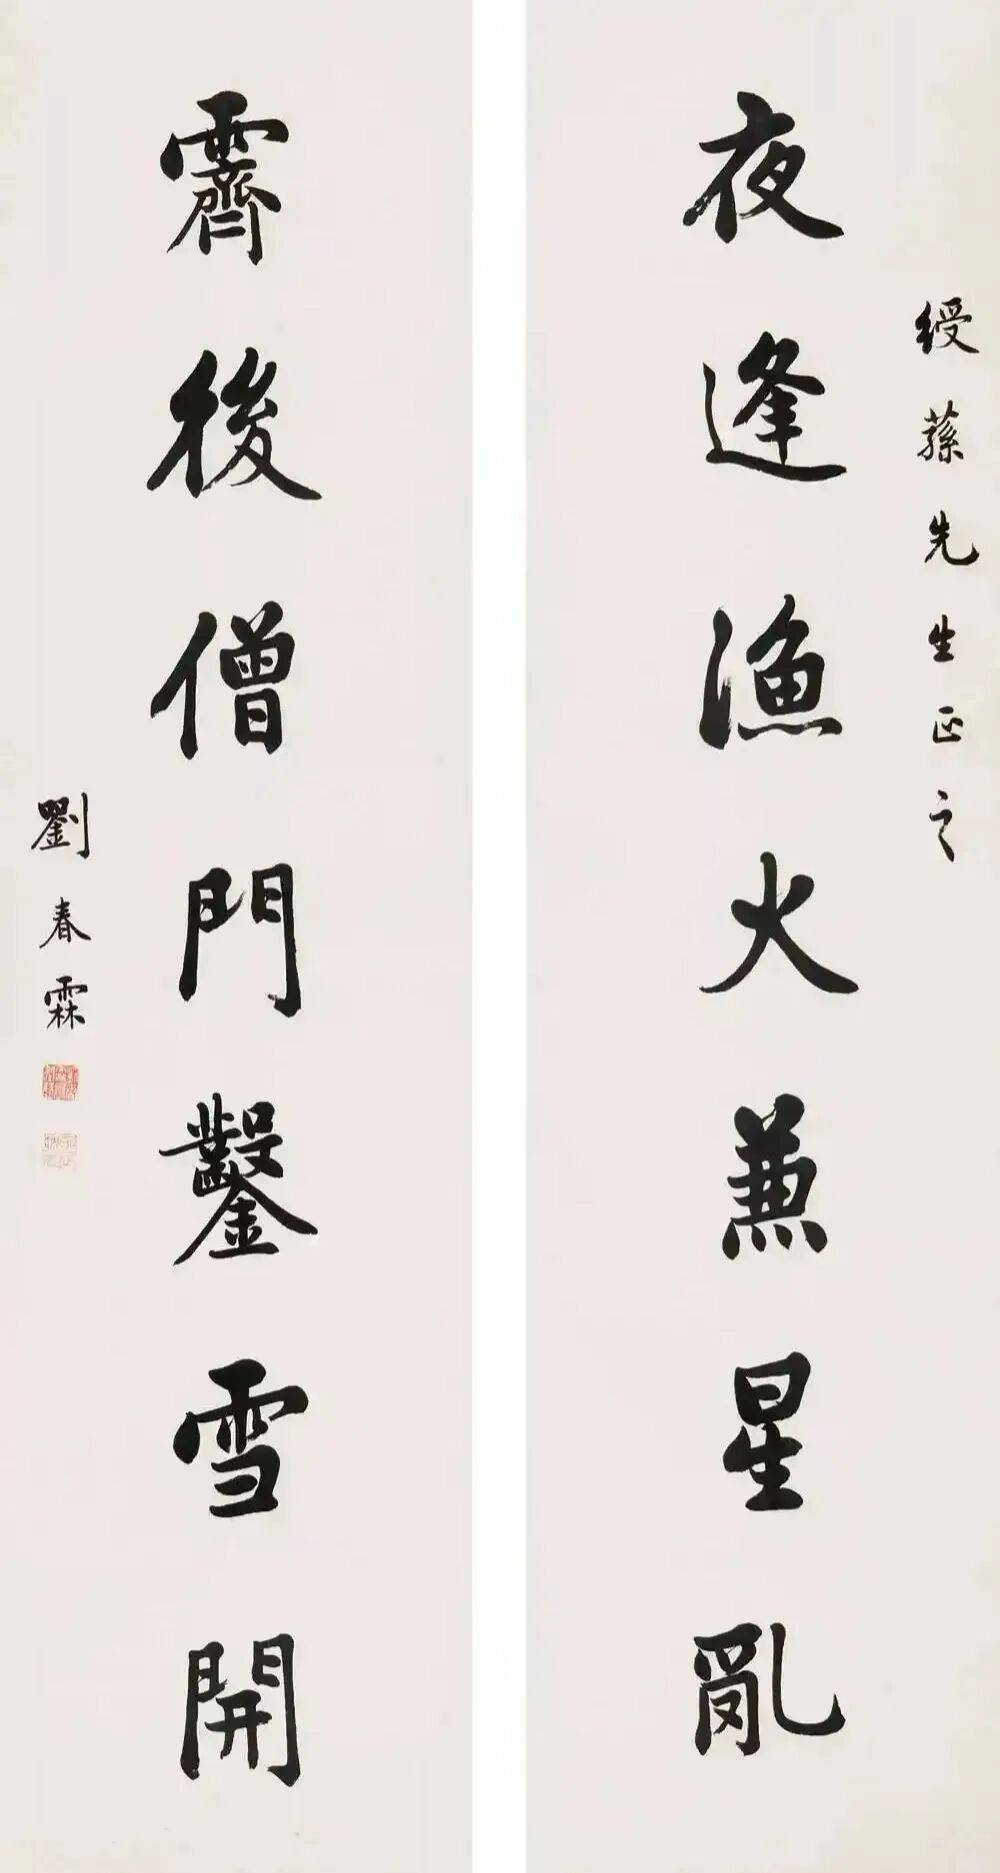 綬蓀先生正之
夜逢漁火兼星亂
霽後僧門鑿雪開
劉春霖